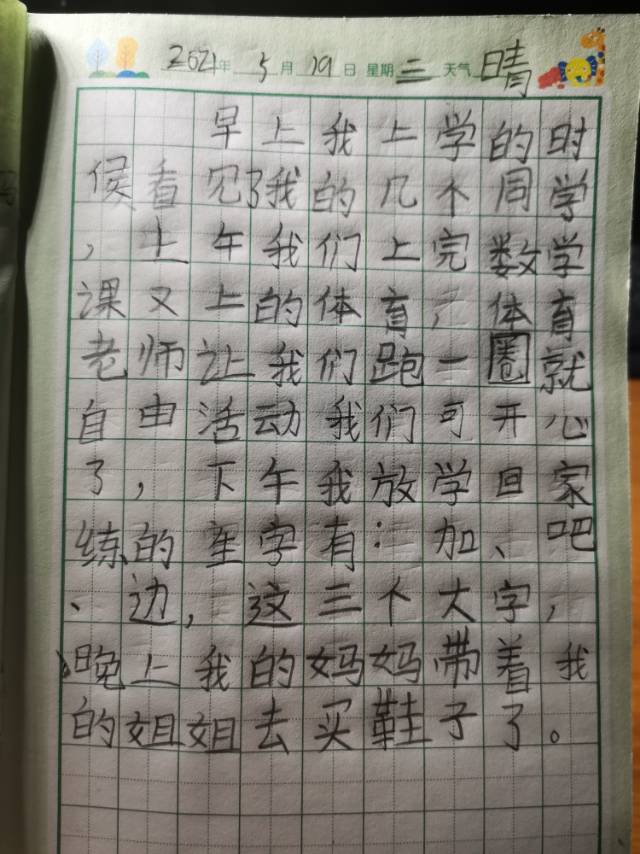 2021年 5月 19日 星期三 天气晴
早上我上学的时
候看见了我的几个同学
，上午我们上完数学
课又上的体育，体育
老师让我们跑一圈就
自由活动我们可开心
了，下午我放学回家
练的生字有：加、吧
、边，这三个大字，
晚上我的妈妈带着我
的姐姐去买鞋子了。